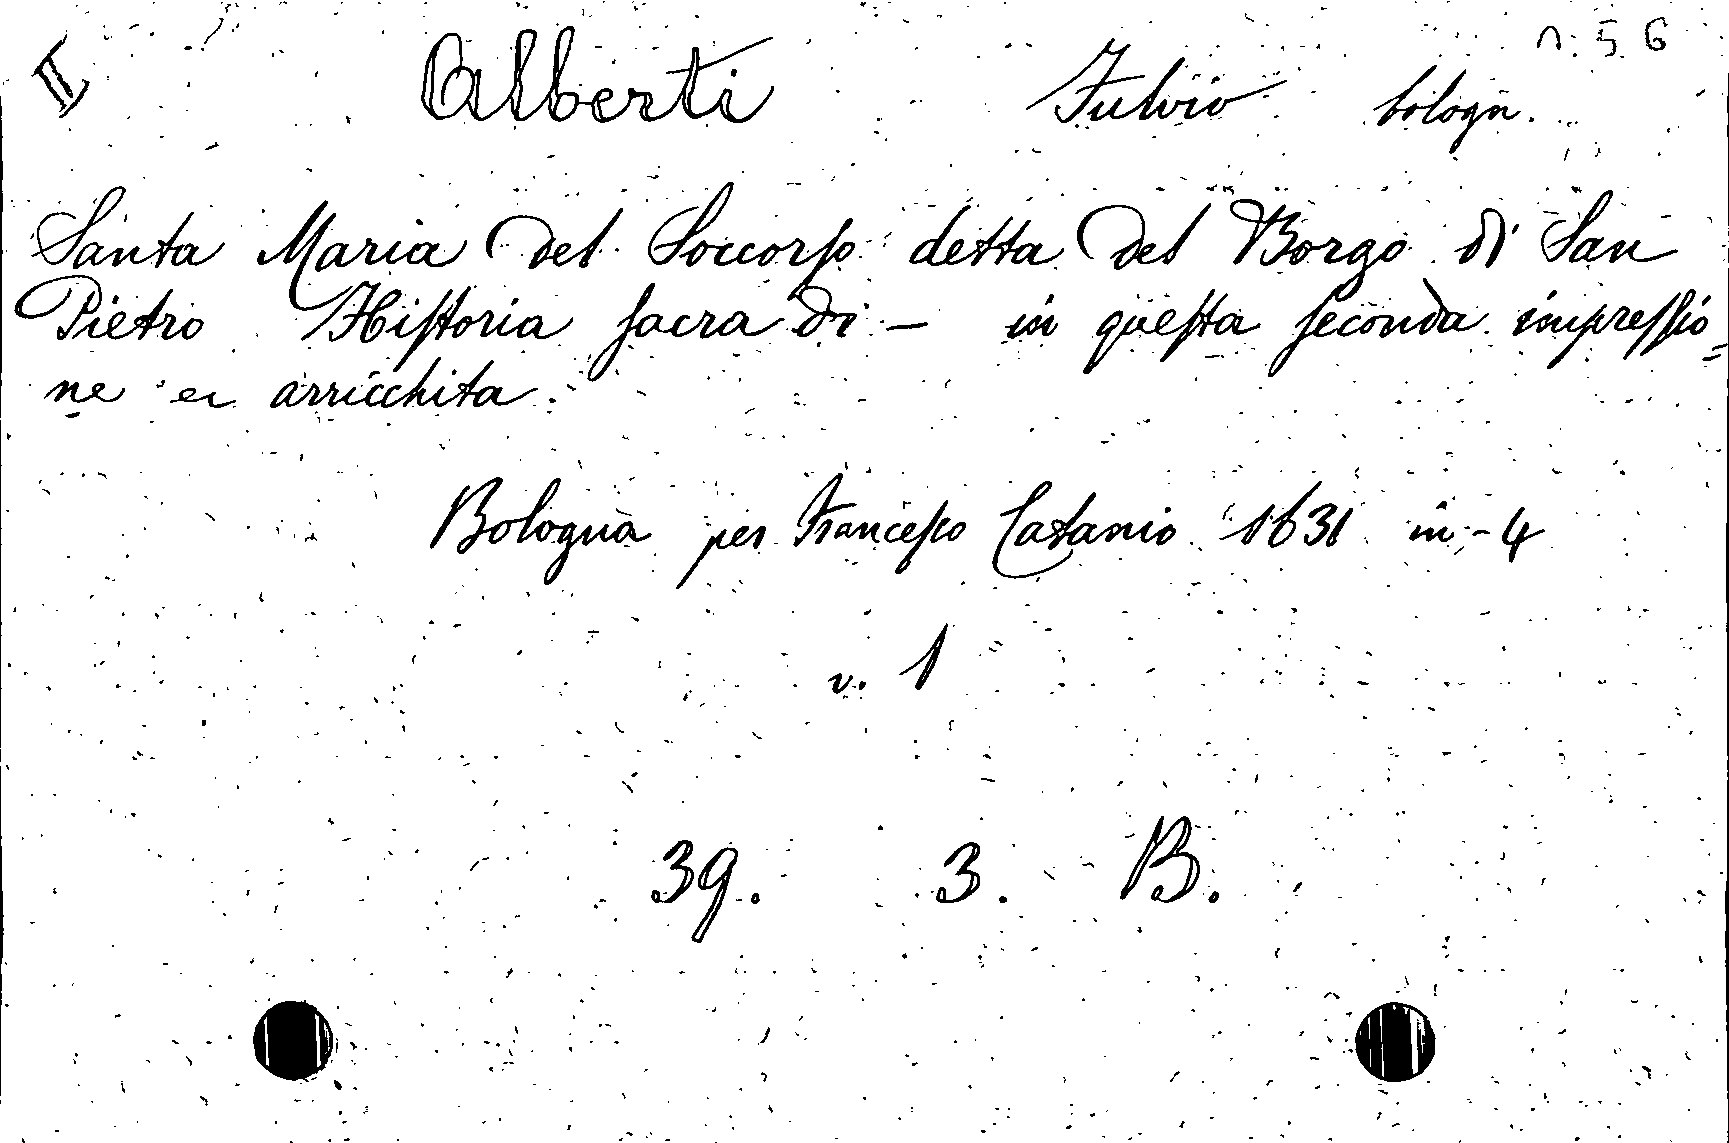 II Alberti Fulvio bologn. n. 56
Santa Maria del Soccorſo detta del Borgo di San
Pietro Hiſtoria ſacra di — in queſta ſeconda impreſſio=
ne et arricchita.
Bologna per Franceſco Catanio 1631 in-4
v. 1
39. 3. B.